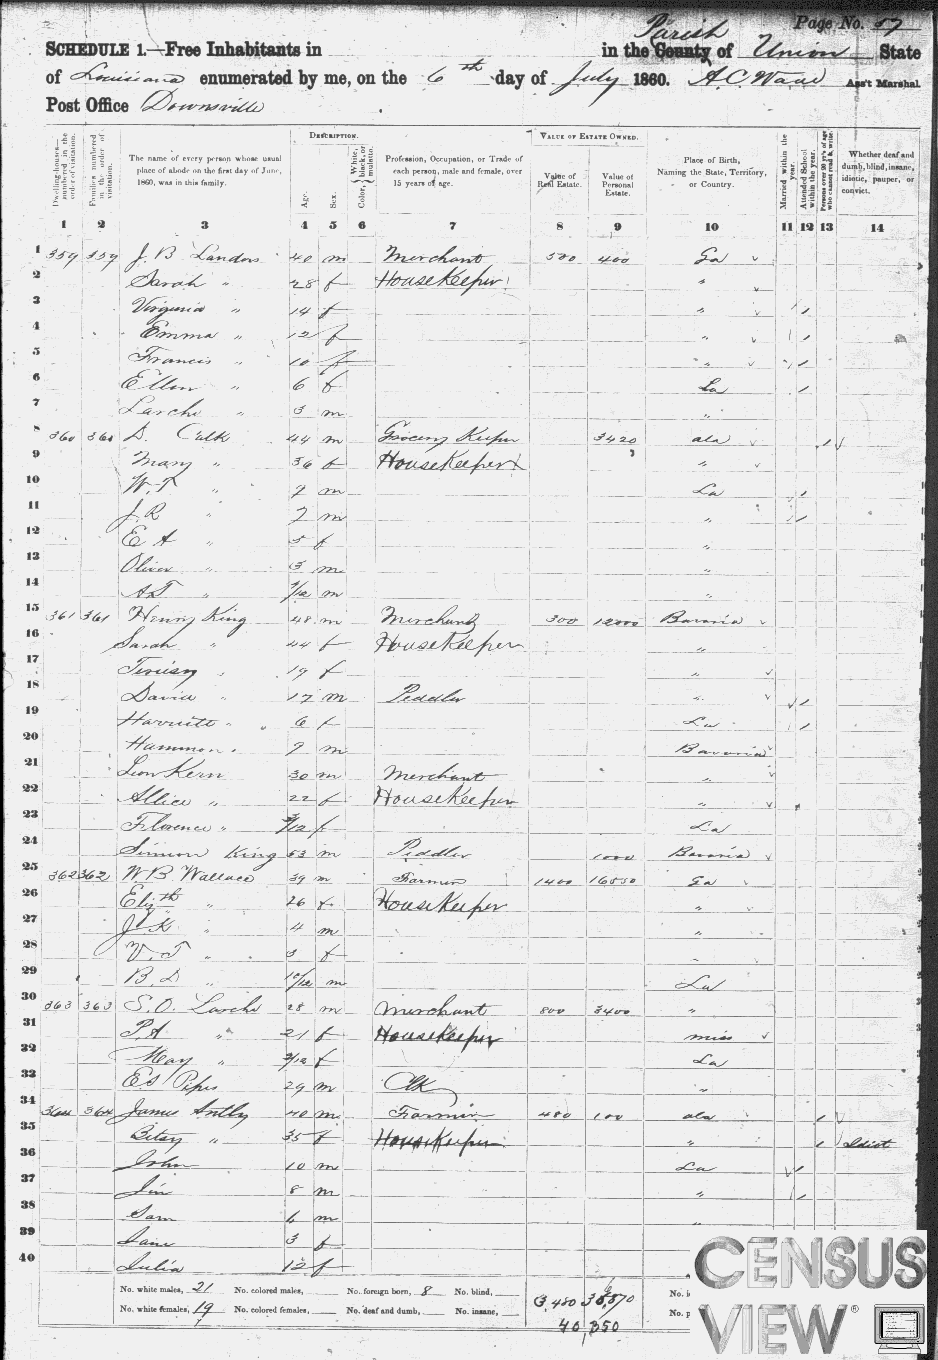 Page No. 57
SCHEDULE 1.—Free Inhabitants in in the County Parish of Union State
of Louisiana enumerated by me, on the 6th day of July 1860. A.C. Wade Ass't Marshal.
Post Office Downsville
DESCRIPTION. VALUE OF ESTATE OWNED.
Dwelling-houses—numbered in the order of visitation. Families numbered in the order of visitation. The name of every person whose usual place of abode on the first day of June, 1860, was in this family. Age. Sex. Color, White, black, or mulatto. Profession, Occupation, or Trade of each person, male and female, over 15 years of age. Value of Real Estate. Value of Personal Estate. Place of Birth, Naming the State, Territory, or Country. Married within the year. Attended School within the year. Persons over 20 yr's of age who cannot read & write. Whether deaf and dumb, blind, insane, idiotic, pauper, or convict.
1 2 3 4 5 6 7 8 9 10 11 12 13 14
1 359 359 J. B. Landors 40 m Merchant 500 400 Ga
2 Sarah " 28 f HouseKeeper "
3 Virginia " 14 f " /
4 Emma " 12 f " /
5 Francis " 10 f " /
6 Ellen " 6 f La /
7 " 3 m "
8 360 360 D. Culk 44 m Grocery Keeper 3420 ala /
9 Mary " 36 f HouseKeeper "
10 W. T " 7 m La /
11 J. R " 7 m " /
12 E A " 5 f "
13 Oliver " 3 m "
14 A T " /12 m "
15 361 361 Henry King 48 m Merchant 300 12000 Bavaria
16 Sarah " 44 f HouseKeeper "
17 " 19 f "
18 David " 17 m Peddler " /
19 Harriett " 6 f La /
20 Hammon " 7 m Bavaria
21 Leon Kern 30 m Merchant "
22 Allice " 22 f HouseKeeper "
23 Florence " /12 f La
24 Simion King 53 m Peddler 1000 Bavaria
25 362 362 W B Wallace 39 m Farmer 1400 16550 Ga
26 Elizth " 26 f HouseKeeper "
27 J K " 4 m "
28 V. T " 3 f "
29 B. D " 10/12 m La
30 363 363 S. O. Larche 28 m Merchant 800 3400 "
31 P. A " 21 f HouseKeeper miss
32 May " /12 f La
33 E S Pipes 29 m Clk "
34 364 364 James Antly 40 m Farmer 480 100 ala /
35 Bitsy " 35 f HouseKeeper " / Idiot
36 John 10 m La /
37 Jim 8 m " /
38 Sam 6 m "
39 Jane 3 f
40 Julia 12 f
No. white males, 21 No. colored males, No. foreign born, 8 No. blind,
No. white females, 19 No. colored females, No. deaf and dumb, No. insane,
3,480 36,870
40,350
CENSUS
VIEW®